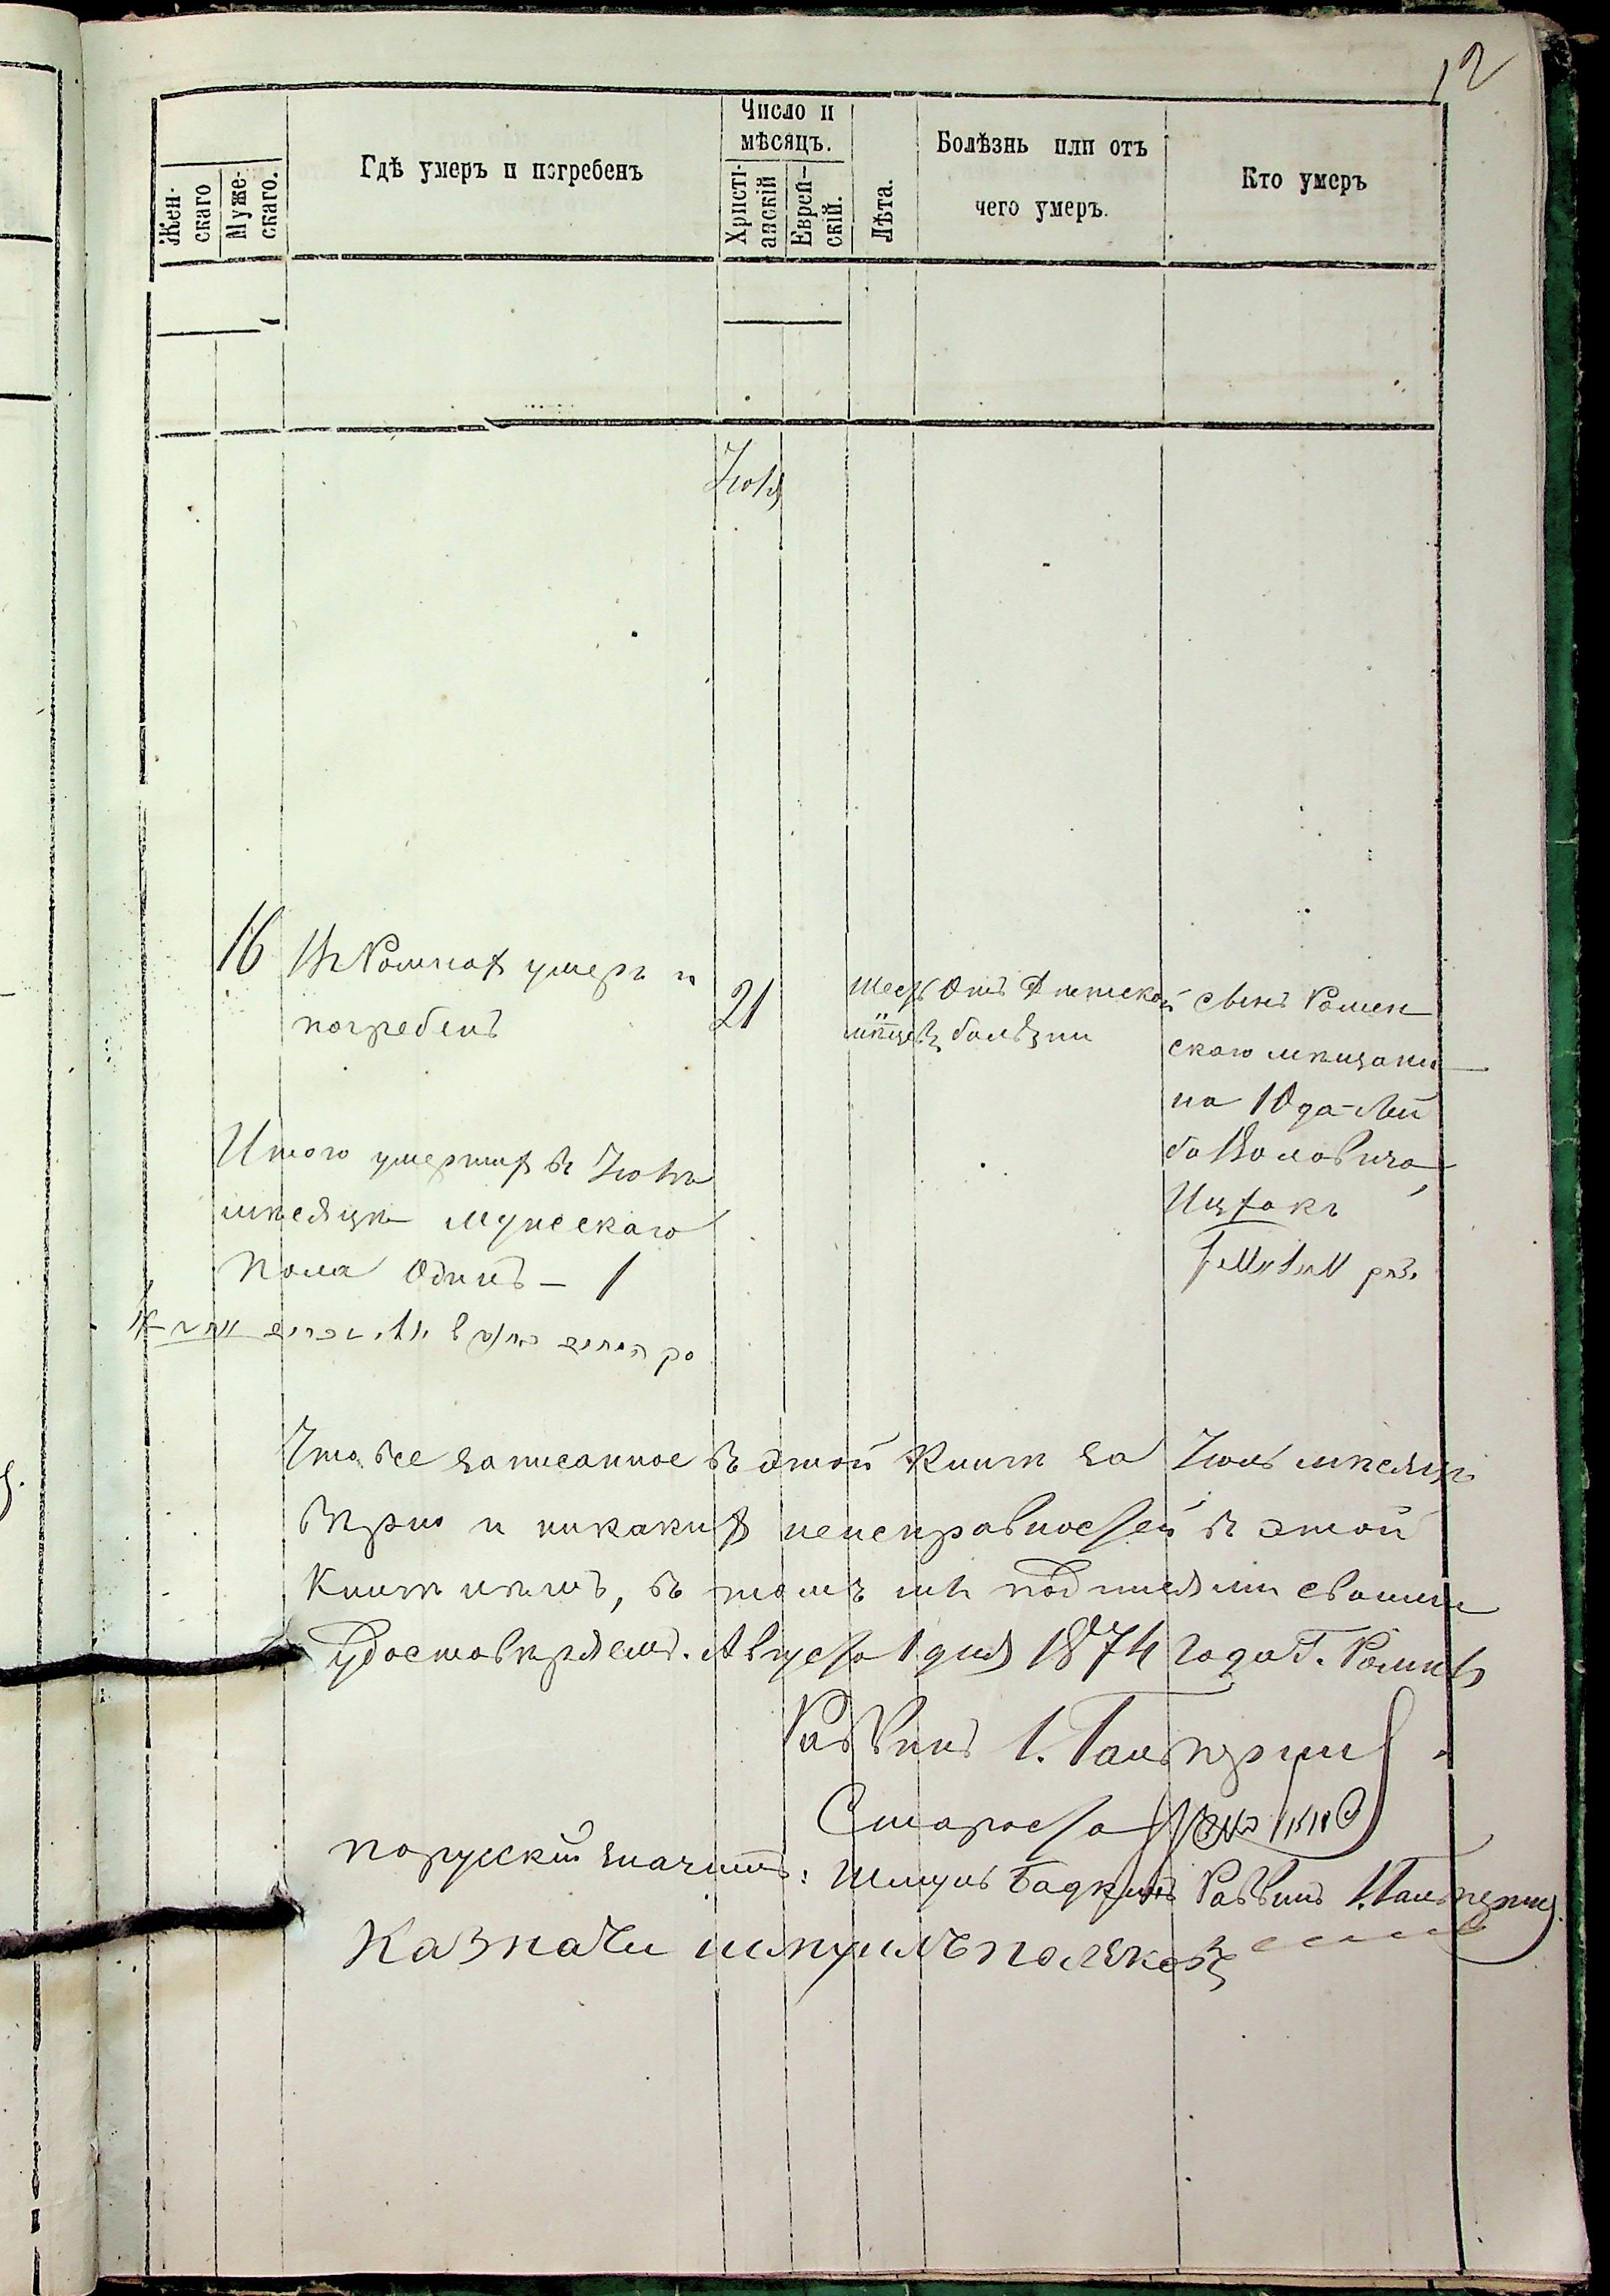 12
Жен-
скаго
Муже-
скаго.
Гдѣ умеръ и погребенъ
Число и
мѣсяцъ.
Христі-
анскій
Еврей-
скій.
Лѣта.
Болѣзнь или отъ
чего умеръ.
Кто умеръ
Іюля
16
Въ Ромнах умеръ и
погребенъ
21
шесть
мѣсяцевъ
Отъ Дѣтской
болѣзни
сынъ Ромен
скаго мѣщани
на Юда-Лей
ба
Ицхакъ
Итого умерших въ Іюлѣ
мѣсяцѣ мужескаго
пола Одинъ — 1
Что все записанное въ этой Книгѣ за Іюль мѣсяцъ
вѣрно и никаких неисправностей въ этой
Книгѣ нѣтъ, въ томъ мы подписями своими
удостовѣряемъ. Августа 1 дня 1874 года Г. Ромны
Раввинъ І. Гальперинъ
Староста
поруски значитъ: Шмуль Раввинъ І. Гальперинъ
Казначи шмуилъ поляковъ